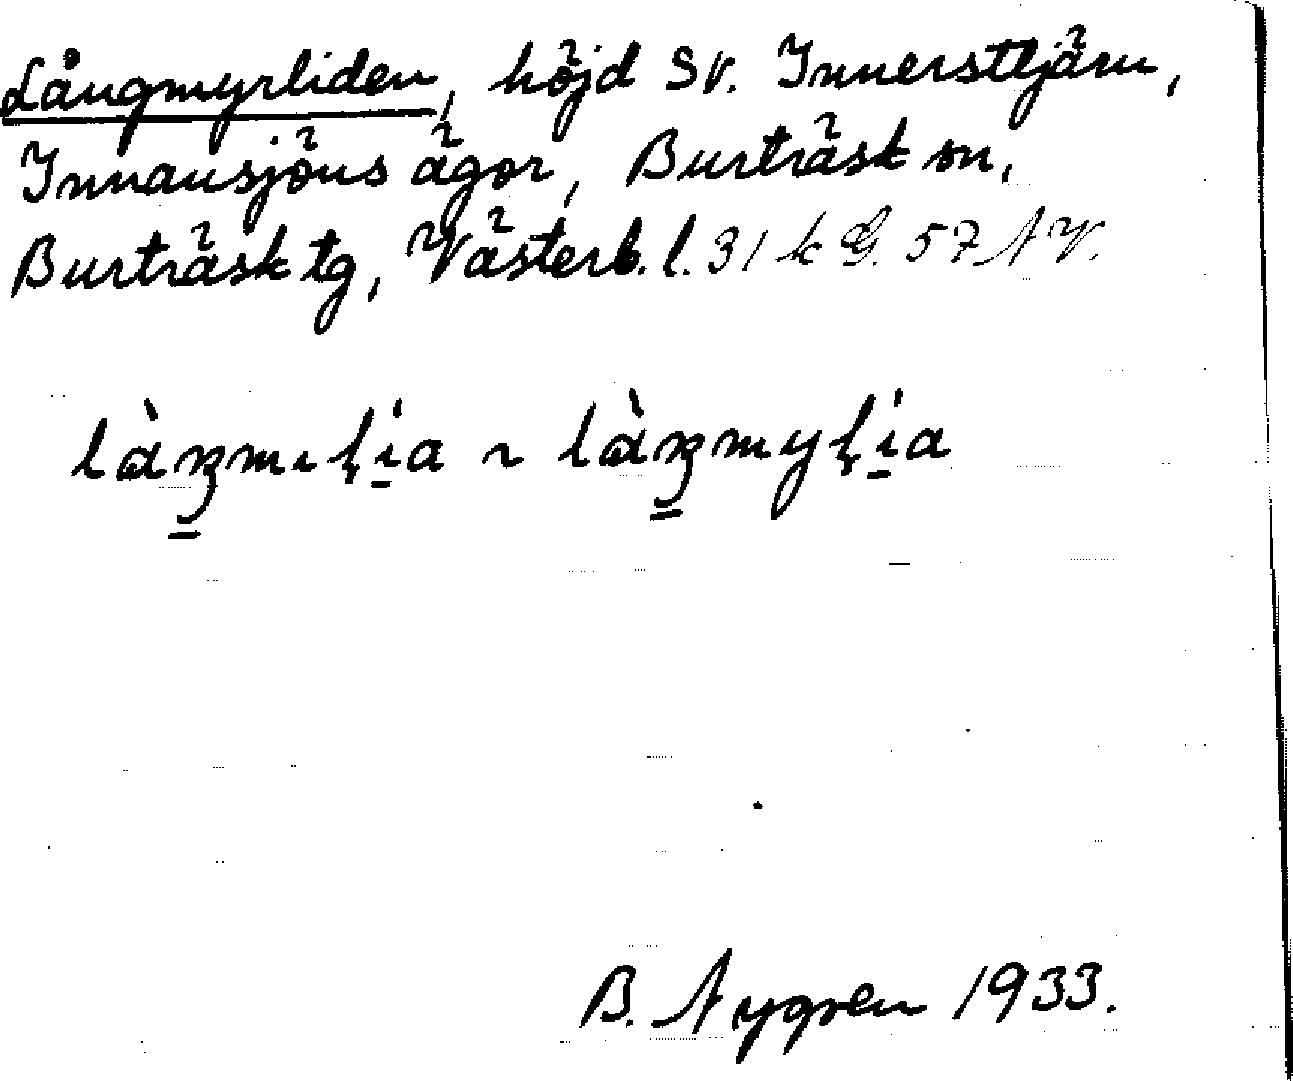 Långmyrliden, höjd SV. Innersttjärn,
Innansjöns ägor, Burträsk sn,
Burträsk tg, Västerb. l. 31 k G. 57 NV.
B. Nygren 1933.